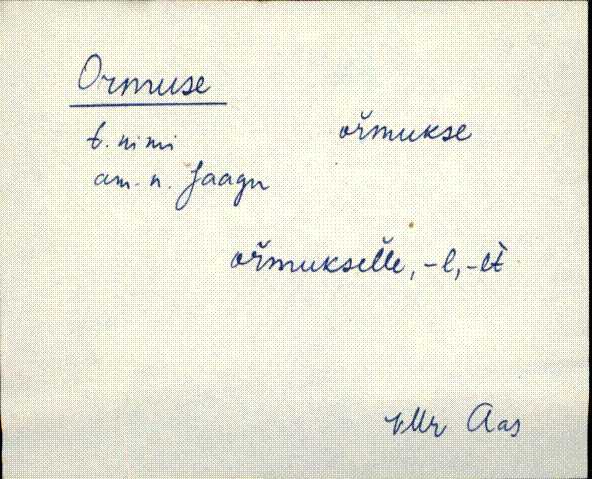 Ormuse
t. nimi
am. n. Jaagu
ořmukse
ořmukselle, -l, -lt
VMr Aas